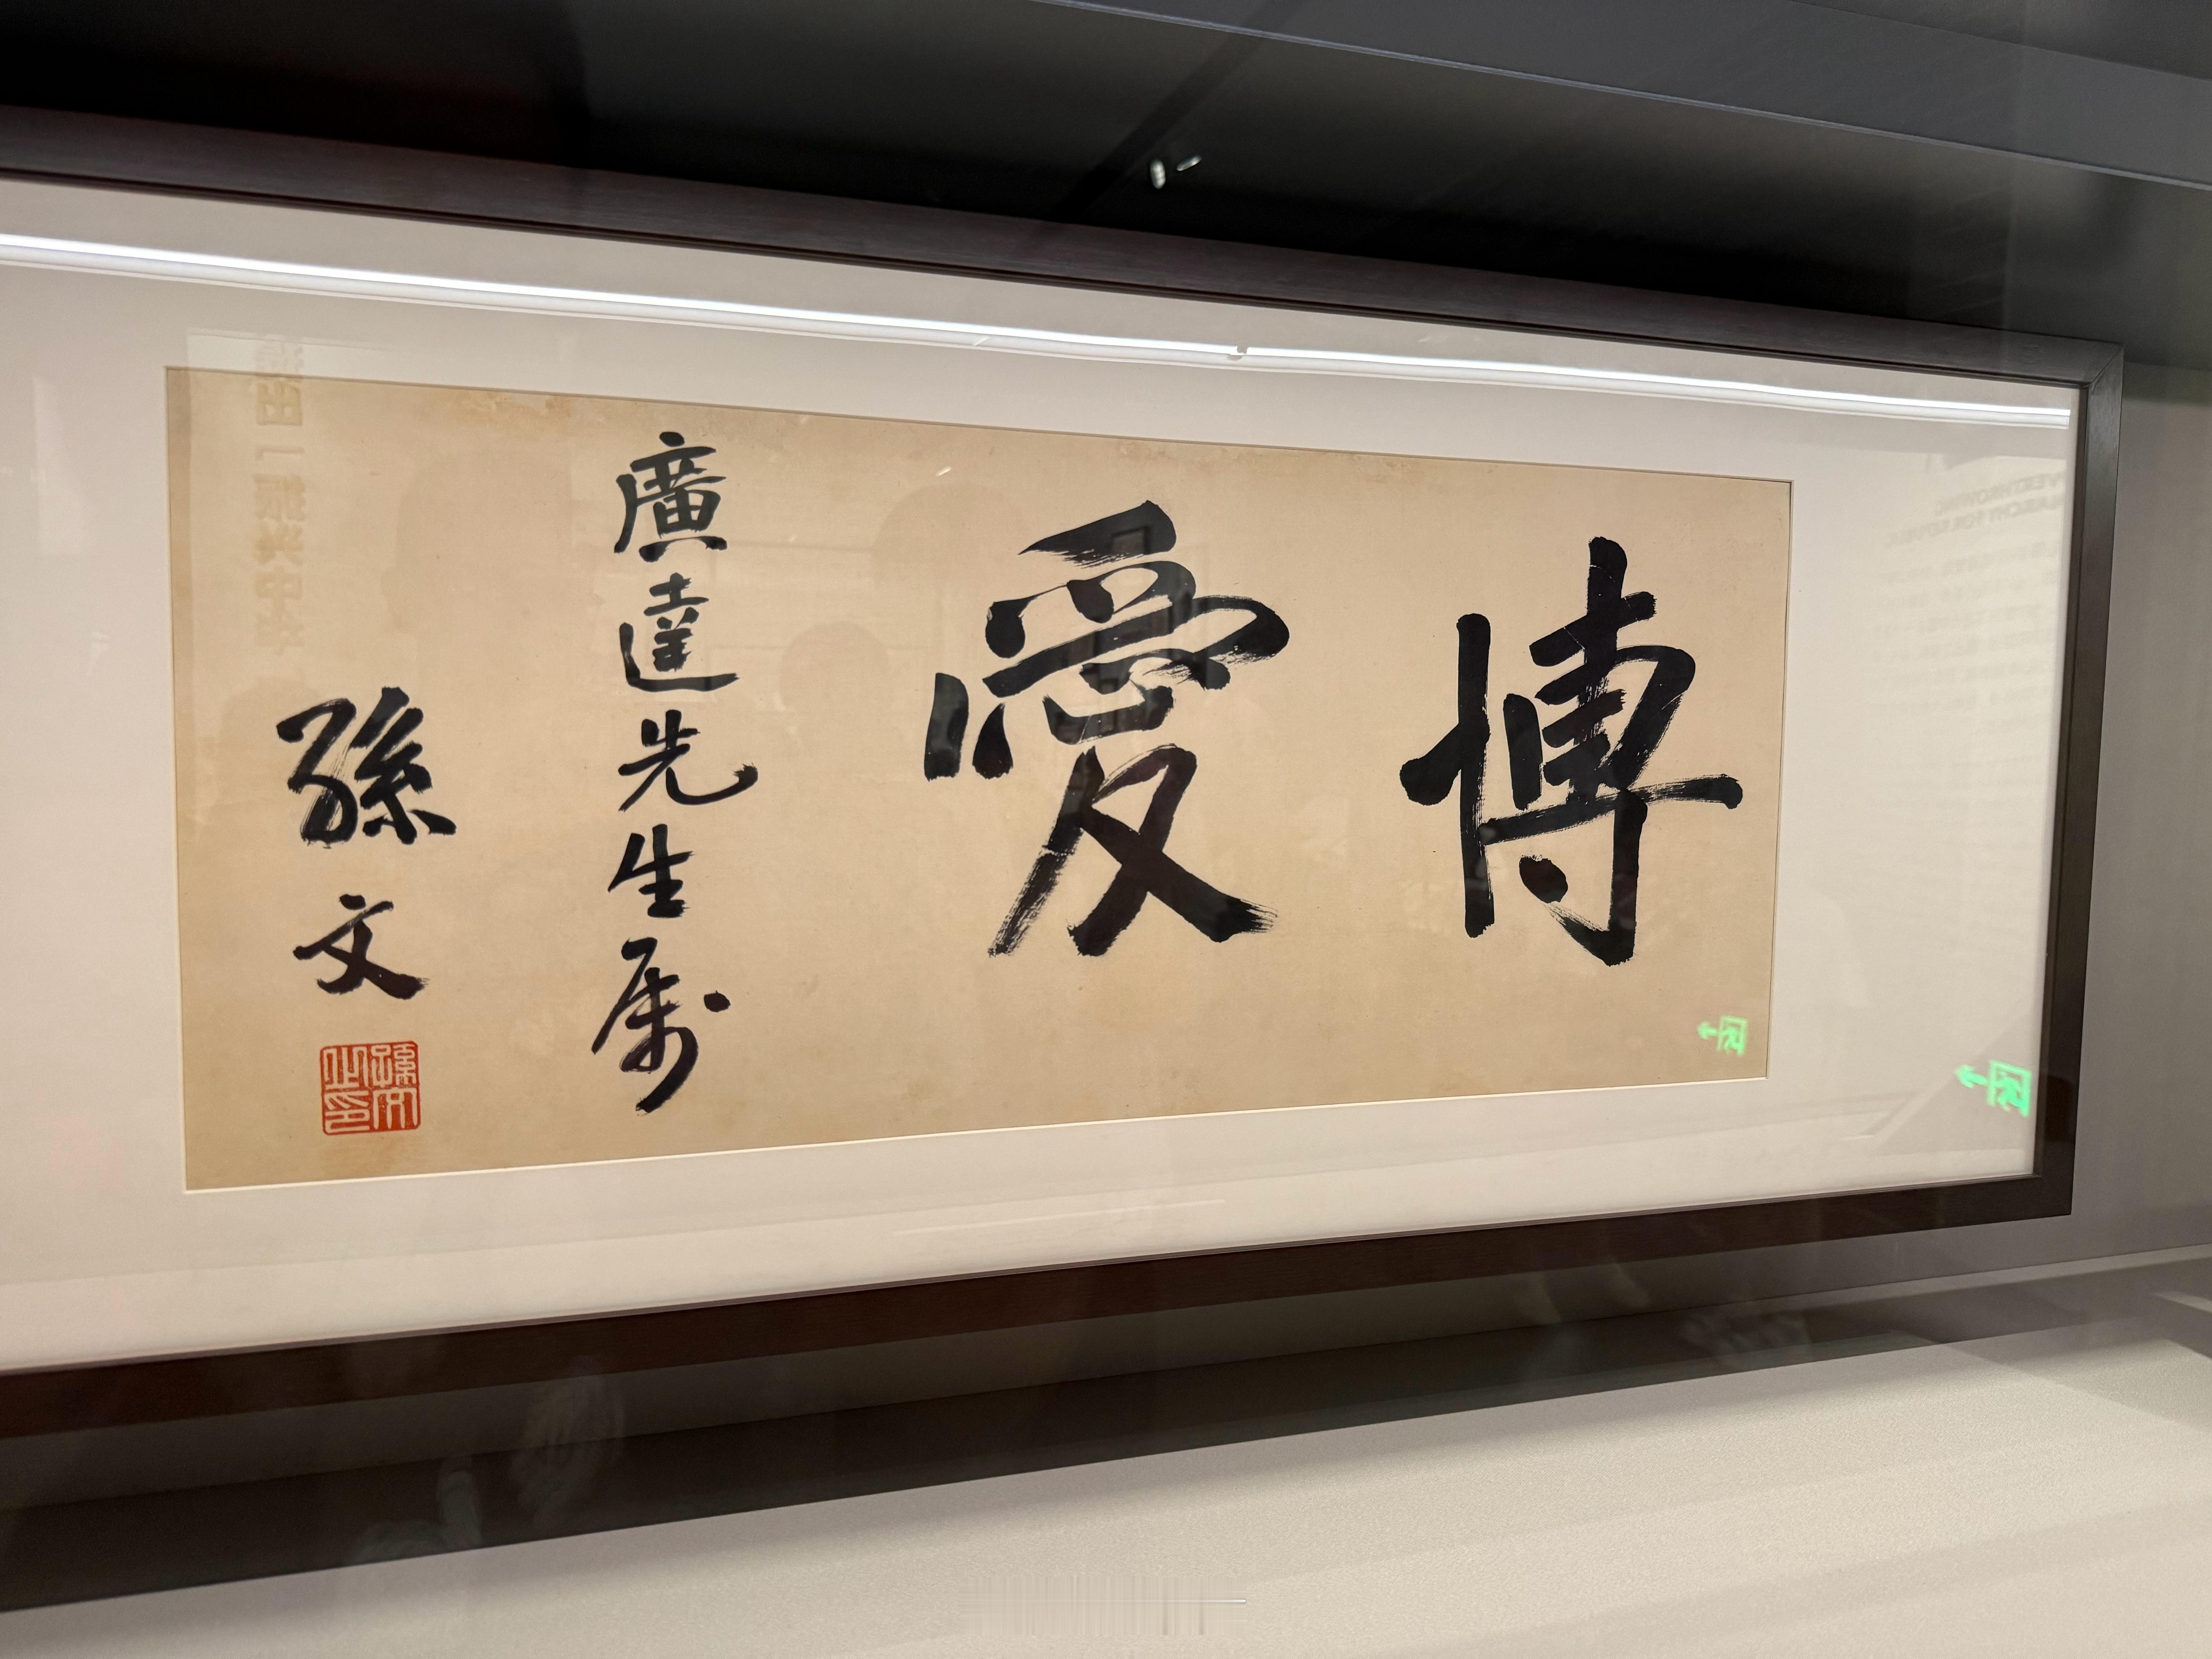 博愛
廣達先生属
孫文
孫文之印